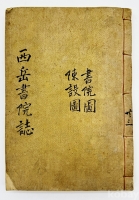 西岳書院誌
書院圖
陳設圖